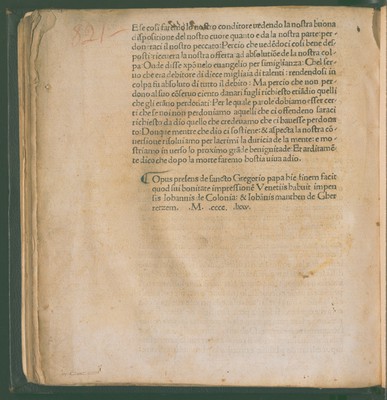 821—
E se cosi faremo lo nostro conditore uedendo la nostra buona
dispositione del nostro cuore quanto e da la nostra parte: per-
donaraci il nostro peccato: Percio che uedēdoci cosi bene des-
posti: riceuera la nostra offerta ad absolutiōe de la nostra col-
pa. Onde disse xpō nelo euangelio per similitudine: Chel ser-
uo che era debitore di diece migliaia di talenti: rendendosi in
colpa fu absoluto di tutto il debito: Ma percio che non per-
dono al suo cōseruo ciento danari fugli richiesto etiādio quelli
che gli erāno perdonati: Per le quale parole dobiamo esser cer-
ti che se noi non perdoniamo a quelli che ci offendeno saraci
richiesto da dio quello che crediamo che ci hauesse perdona
to: Donque mentre che dio ci sostiene: & aspecta la nostra cō-
uersione risoluiamo per lacrime la duricia de la mente: e mo-
striamo in uerso lo proximo grāde benignitade: Et arditamē-
te dico che dopo la morte saremo hostia uiua a dio.
Opus presens de sancto Gregorio papa hic finem facit
quod sui bonitate impressionē Venetiis habuit impen
sis Iohannis de Colonia: & Iohānis manthen de Gher
retzem. .M. .cccc. .lxxv.